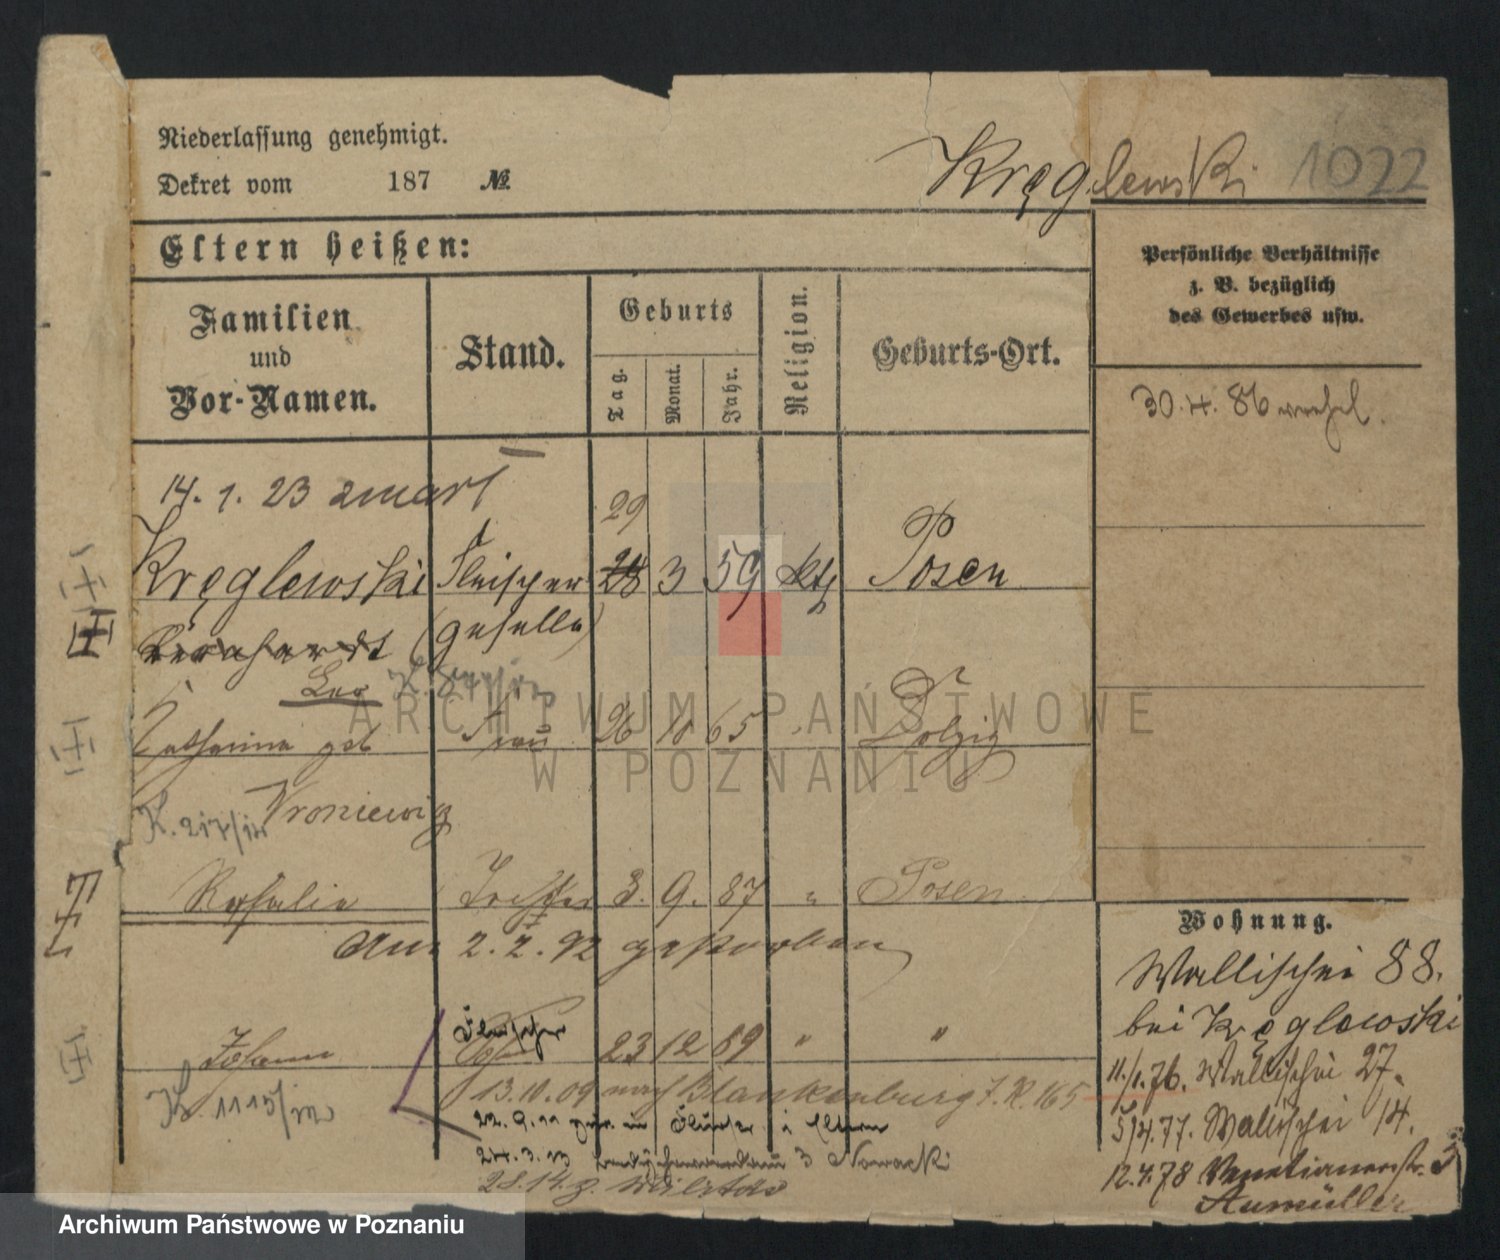 Niederlassung genehmigt.
Dekret vom 187 №
Kręglewski 1022
Eltern heißen:
Persönliche Verhältnisse
z. B. bezüglich
des Gewerbes usw.
Familien
und
Vor-Namen.
Stand.
Geburts
Tag.
Monat.
Jahr.
Religion.
Geburts-Ort.
30.4.86
14. 1. 23 zmarł
29
Kręglewski Fleischer 28 3 59 kth Posen
Bernhardt (geselle)
Leo
Catharina geb Frau 26 10 65 Dolzig
Wroniewicz
K. 217/
Rosalie Tochter 3. 9. 87 " Posen
Am 2. 2. 92 gestorben
Fleischer
Johann Sohn 23 12 89 " "
K 1115/
13.10.09 nach Blankenburg
22.9.11 Eltern
24.3.13 Nowacki
Wohnung.
Wallischei 88.
bei Kręglewski
11/1.76. Wallischei 27.
5/4.77. Wallischei 14.
12.4.78 Venetianerstr. 3
Aumüller
ARCHIWUM PAŃSTWOWE
W POZNANIU
Archiwum Państwowe w Poznaniu